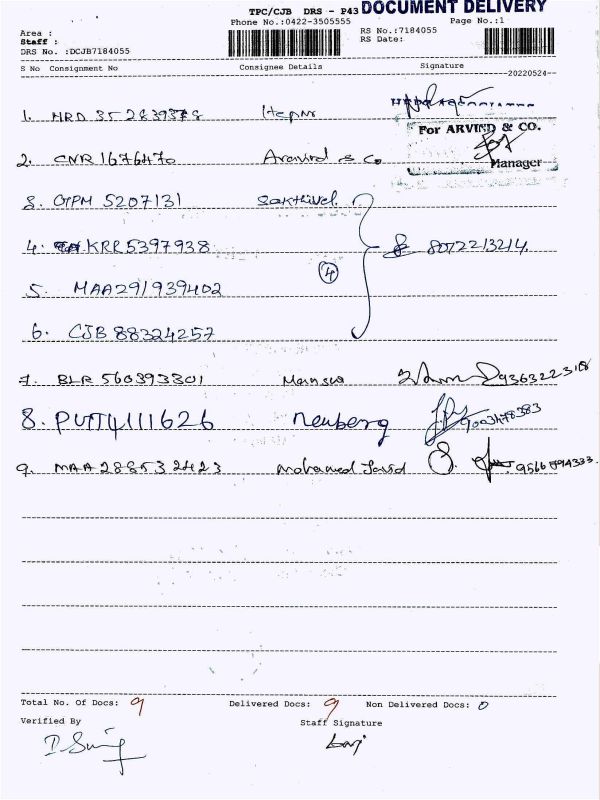 TPC/CJB DRS - P43 DOCUMENT DELIVERY
Phone No.:0422-3505555 Page No.:1
Area :
Staff :
DRS No. :DCJB7184055
RS No.:7184055
RS Date:
S No Consignment No Consignee Details Signature
20220524
1. HRD 352839378
For ARVIND & CO.
Manager
2. CNR 1676470 Aravind & Co
3. OTPM 5207131 Sakthivel
4. KRR5397938 8072213214
5. MAA291939402
4
6. CJB 88324257
7. BLR 560393801 9363223118
8. PUT4111626 Neuberg 9003478383
9. MAA 288532423 Mohamed Javid
Total No. Of Docs: 9 Delivered Docs: 9 Non Delivered Docs: 0
Verified By Staff Signature